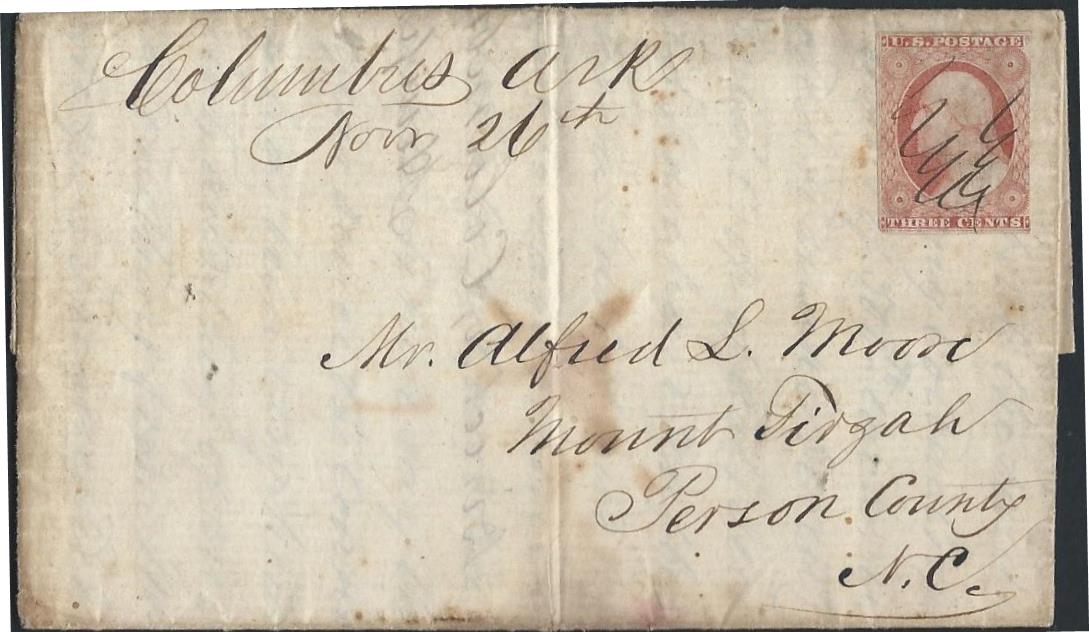 Columbus Ark
Nov 26th
U.S. POSTAGE
THREE CENTS
Mr. Alfred L. Moore
Mount Tirzah
Person County
N.C.